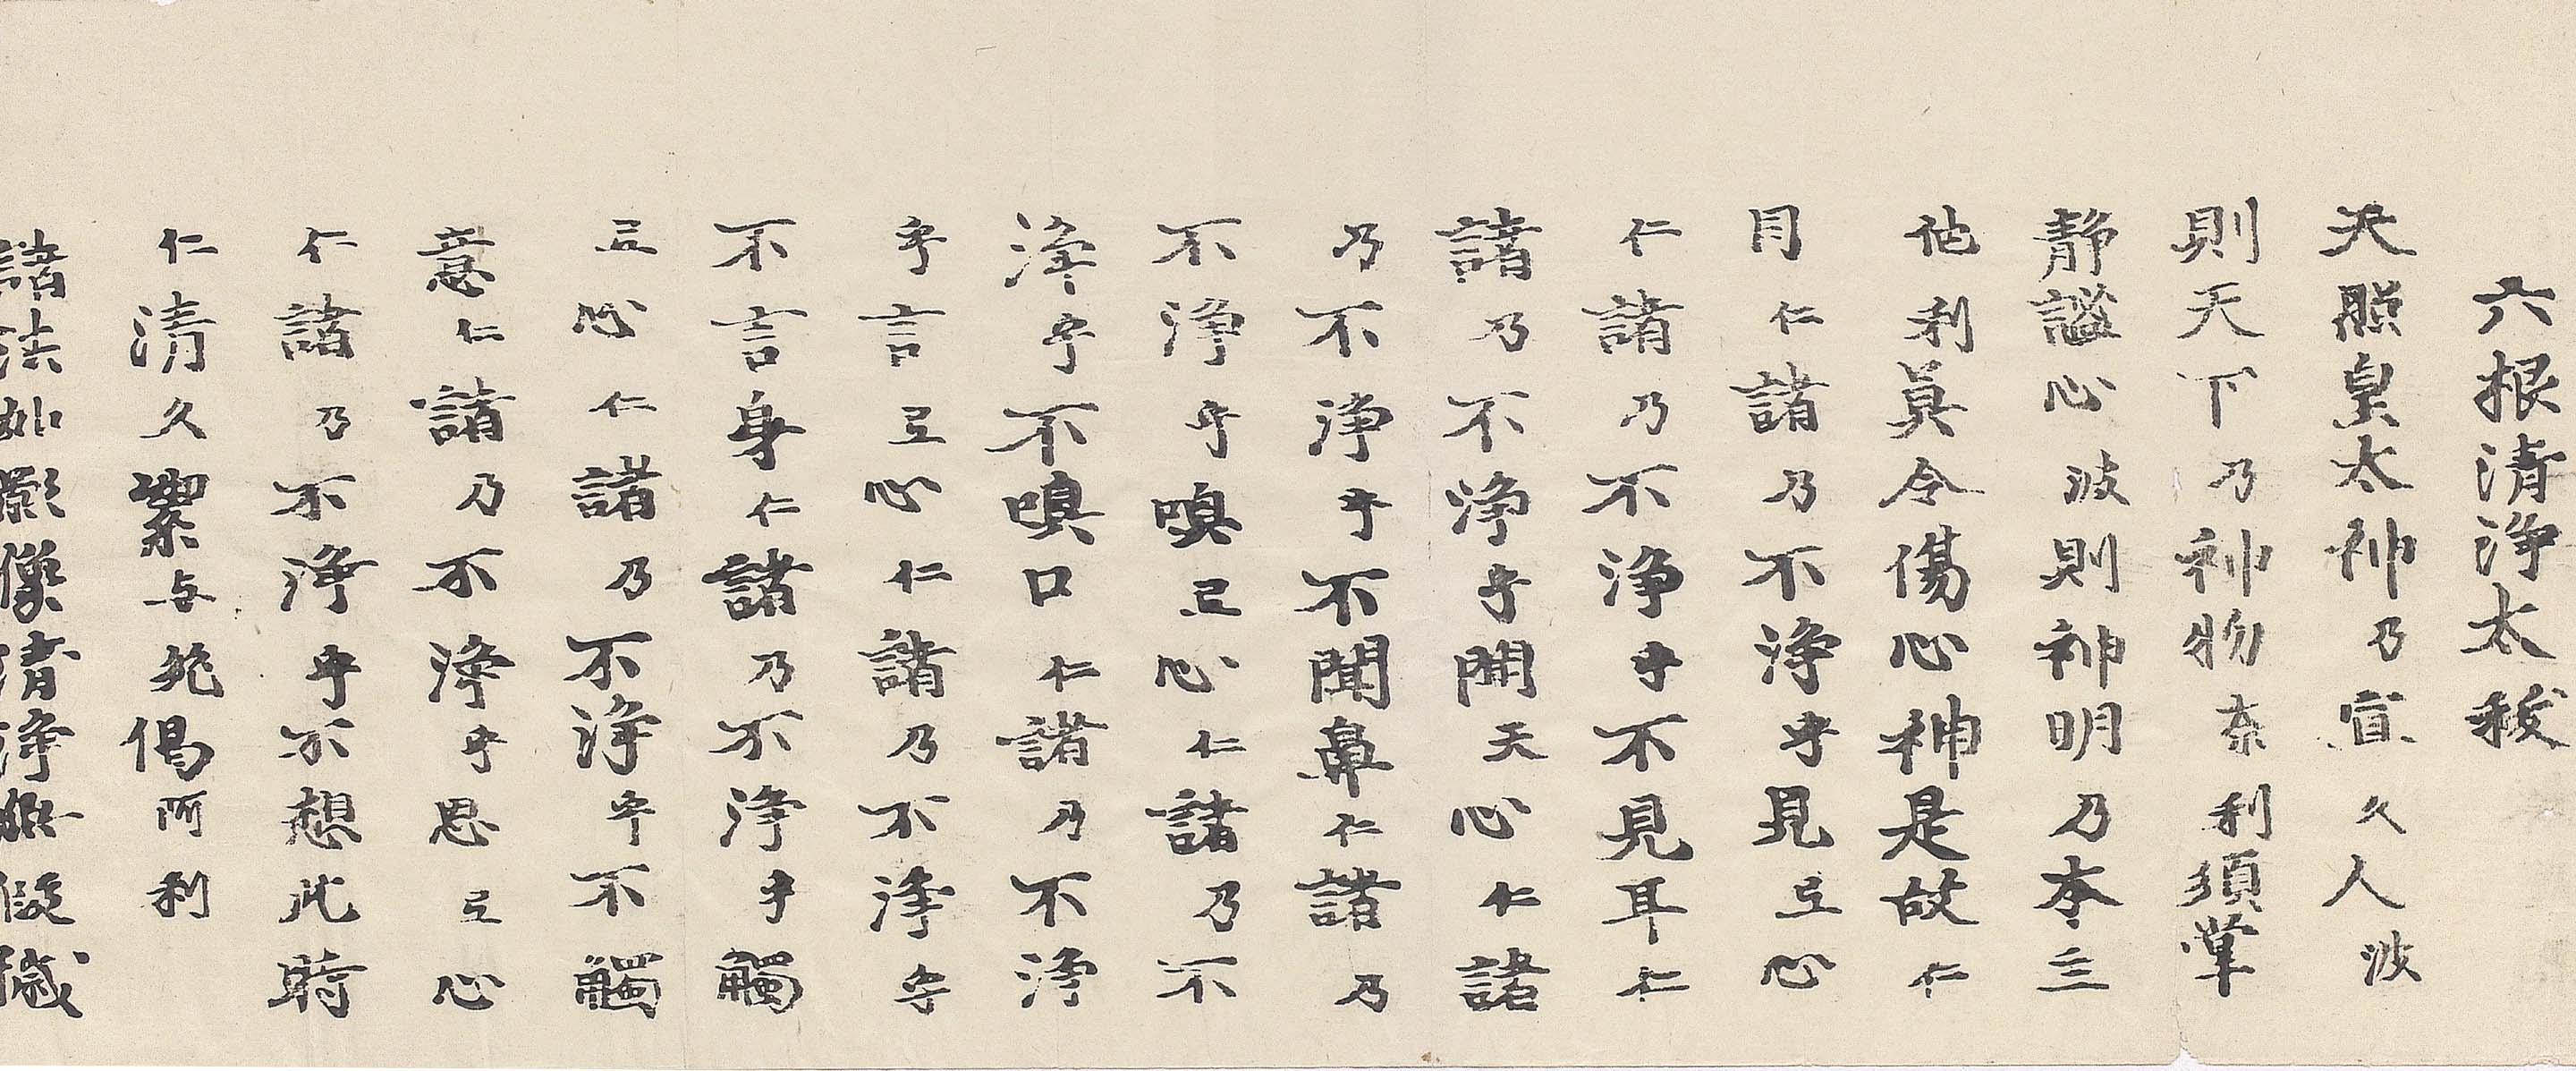 六根清浄太秡
天照皇太神乃宣久人波
則天下乃神物奈利須掌
静謐心波則神明乃本主
他利莫令傷心神是故仁
目仁諸乃不浄乎見弖心
仁諸乃不浄乎不見耳仁
諸乃不浄乎聞天心仁諸
乃不浄乎不聞鼻仁諸乃
不浄乎嗅弖心仁諸乃不
浄乎不嗅口仁諸乃不浄
乎言弖心仁諸乃不浄乎
不言身仁諸乃不浄乎觸
弖心仁諸乃不浄乎不觸
意仁諸乃不浄乎思弖心
仁諸乃不浄乎不想此時
仁清久潔与偈阿利
諸法如影像清浄無假穢